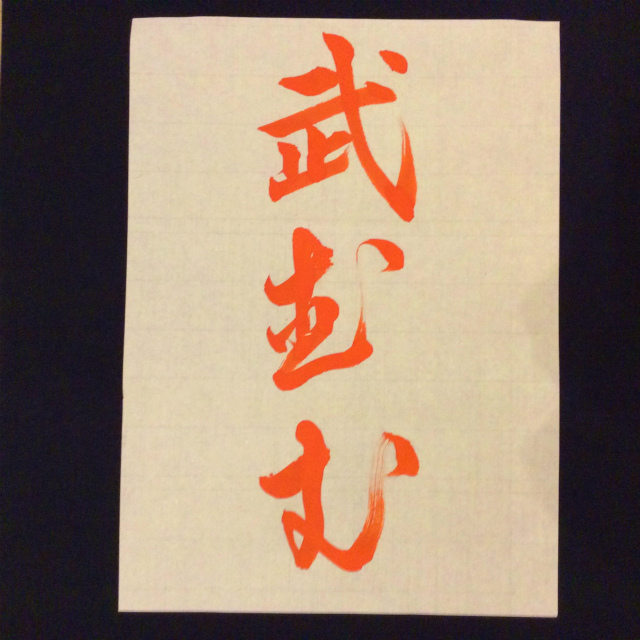 武
む
む